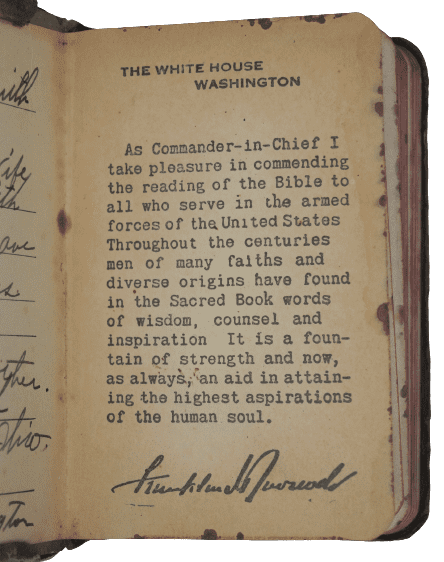 THE WHITE HOUSE
WASHINGTON
As Commander-in-Chief I
take pleasure in commending
the reading of the Bible to
all who serve in the armed
forces of the United States
Throughout the centuries
men of many faiths and
diverse origins have found
in the Sacred Book words
of wisdom, counsel and
inspiration It is a foun-
tain of strength and now,
as always, an aid in attain-
ing the highest aspirations
of the human soul.
Franklin D Roosevelt